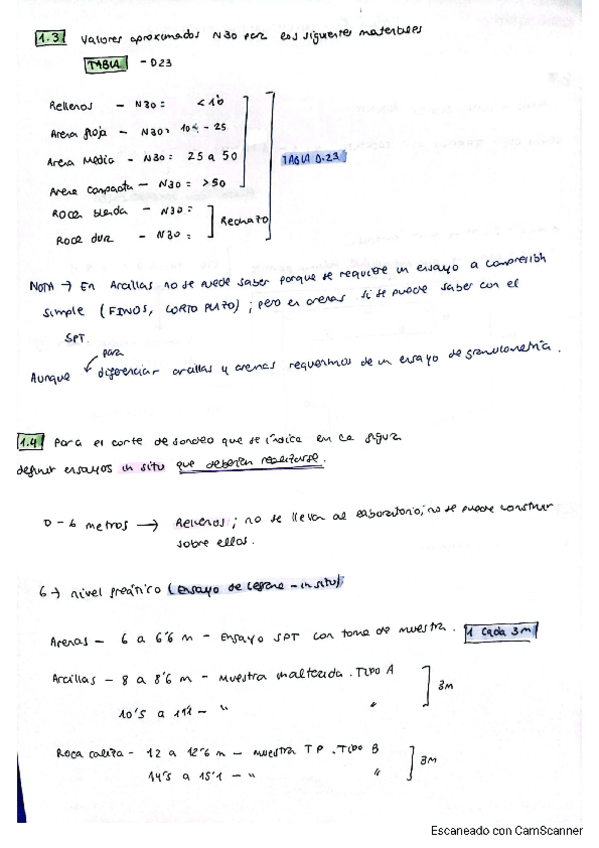 1.3 Valores aproximados N30 para los siguientes materiales
TABLA - D23
Rellenos - N30 = < 10
Arena floja - N30 = 10 - 25
Arena Media - N30 = 25 a 50
TABLA D.23
Arena compacta - N30 = > 50
Roca blanda - N30 =
Rechazo
Roca dura - N30 =
NOTA → En Arcillas no se puede saber porque se requiere un ensayo a compresión
simple (FINOS, CORTO PLAZO); pero en arenas si se puede saber con el
SPT.
para
Aunque diferenciar arcillas y arenas requerimos de un ensayo de granulometría.
1.4 Para el corte de sondeo que se índica en la figura
definir ensayos in situ que deberían realizarse.
0 - 6 metros → Rellenos; no se lleva al laboratorio; no se puede construir
sobre ellos.
6 → nivel freático (ensayo de - in situ)
Arenas - 6 a 6'6 m - Ensayo SPT con toma de muestra. 1 cada 3m
Arcillas - 8 a 8'6 m - muestra inalterada. TIPO A
3m
10'5 a 11'1 - " "
Roca caliza - 12 a 12'6 m - muestra T P. TIPO B
3m
14'5 a 15'1 - " "
Escaneado con CamScanner